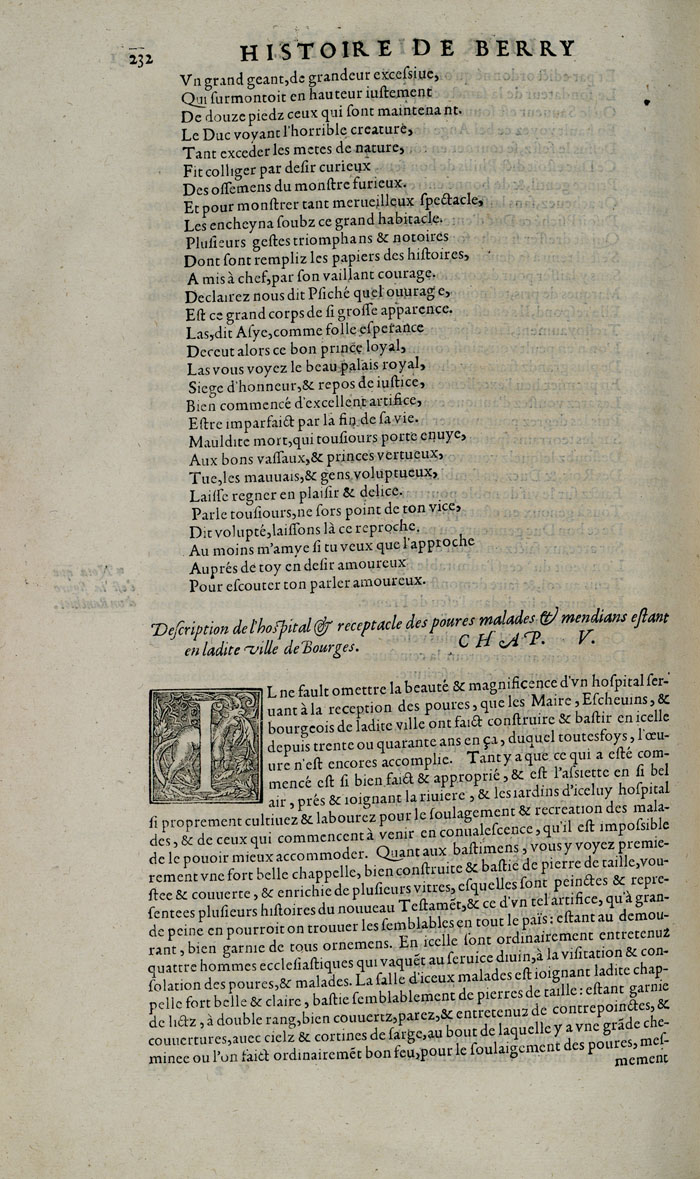 232 HISTOIRE DE BERRY
Vn grand geant,de grandeur exceſsiue,
Qui ſurmontoit en hauteur iuſtement
De douze piedz ceux qui ſont maintenant.
Le Duc voyant l'horrible creature,
Tant exceder les metes de nature,
Fit colliger par deſir curieux
Des oſſemens du monſtre furieux.
Et pour monſtrer tant merueilleux ſpectacle,
Les encheyna ſoubz ce grand habitacle.
Pluſieurs geſtes triomphans & notoires
Dont ſont rempliz les papiers des hiſtoires,
A mis à chef,par ſon vaillant courage.
Declairez nous dit Pſiché quel ouurage,
Eſt ce grand corps de ſi groſſe apparence.
Las,dit Aſye,comme folle eſperance
Deceut alors ce bon prince loyal,
Las vous voyez le beau palais royal,
Siege d'honneur,& repos de iuſtice,
Bien commencé d'excellent artifice,
Eſtre imparfaict par la fin de ſa vie.
Mauldite mort,qui touſiours porte enuye,
Aux bons vaſſaux,& princes vertueux,
Tue,les mauuais,& gens voluptueux,
Laiſſe regner en plaiſir & delice.
Parle touſiours,ne ſors point de ton vice,
Dit volupté,laiſſons là ce reproche.
Au moins m'amye ſi tu veux que l'approche
Auprés de toy en deſir amoureux
Pour eſcouter ton parler amoureux.
Deſcription de l'hoſpital & receptacle des poures malades & mendians eſtant
en ladite ville de Bourges. CHAP. V.
IL ne fault omettre la beauté & magnificence d'vn hoſpital ſer-
uant à la reception des poures, que les Maire, Eſcheuins, &
bourgeois de ladite ville ont faict conſtruire & baſtir en icelle
depuis trente ou quarante ans en ça, duquel toutesfoys, l'œu-
ure n'eſt encores accomplie. Tant y a que ce qui a eſté com-
mencé eſt ſi bien faict & approprié, & eſt l'aſsiette en ſi bel
air, prés & ioignant la riuiere, & les iardins d'iceluy hoſpital
ſi proprement cultiuez & labourez pour le ſoulagement & recreation des mala-
des, & de ceux qui commencent à venir en conualeſcence, qu'il eſt impoſsible
de le pouoir mieux accommoder. Quant aux baſtimens, vous y voyez premie-
rement vne fort belle chappelle, bien conſtruite & baſtie de pierre de taille, vou-
ſtee & couuerte, & enrichie de pluſieurs vitres, eſquelles ſont peinctes & repre-
ſentees pluſieurs hiſtoires du nouueau Teſtamẽt,& ce d'vn tel artifice, qu'à gran-
de peine en pourroit on trouuer les ſemblables en tout le païs: eſtant au demou-
rant, bien garnie de tous ornemens. En icelle ſont ordinairement entretenuz
quattre hommes eccleſiaſtiques qui vaquẽt au ſeruice diuin,à la viſitation & con-
ſolation des poures,& malades. La ſalle d'iceux malades eſt ioignant ladite chap-
pelle fort belle & claire, baſtie ſemblablement de pierres de taille: eſtant garnie
de lictz, à double rang,bien couuertz,parez,& entretenuz de contrepoinctes, &
couuertures,auec cielz & cortines de ſarge,au bout de laquelle y a vne grãde che-
minee ou l'on faict ordinairemẽt bon feu,pour le ſoulaigement des poures, meſ-
mement